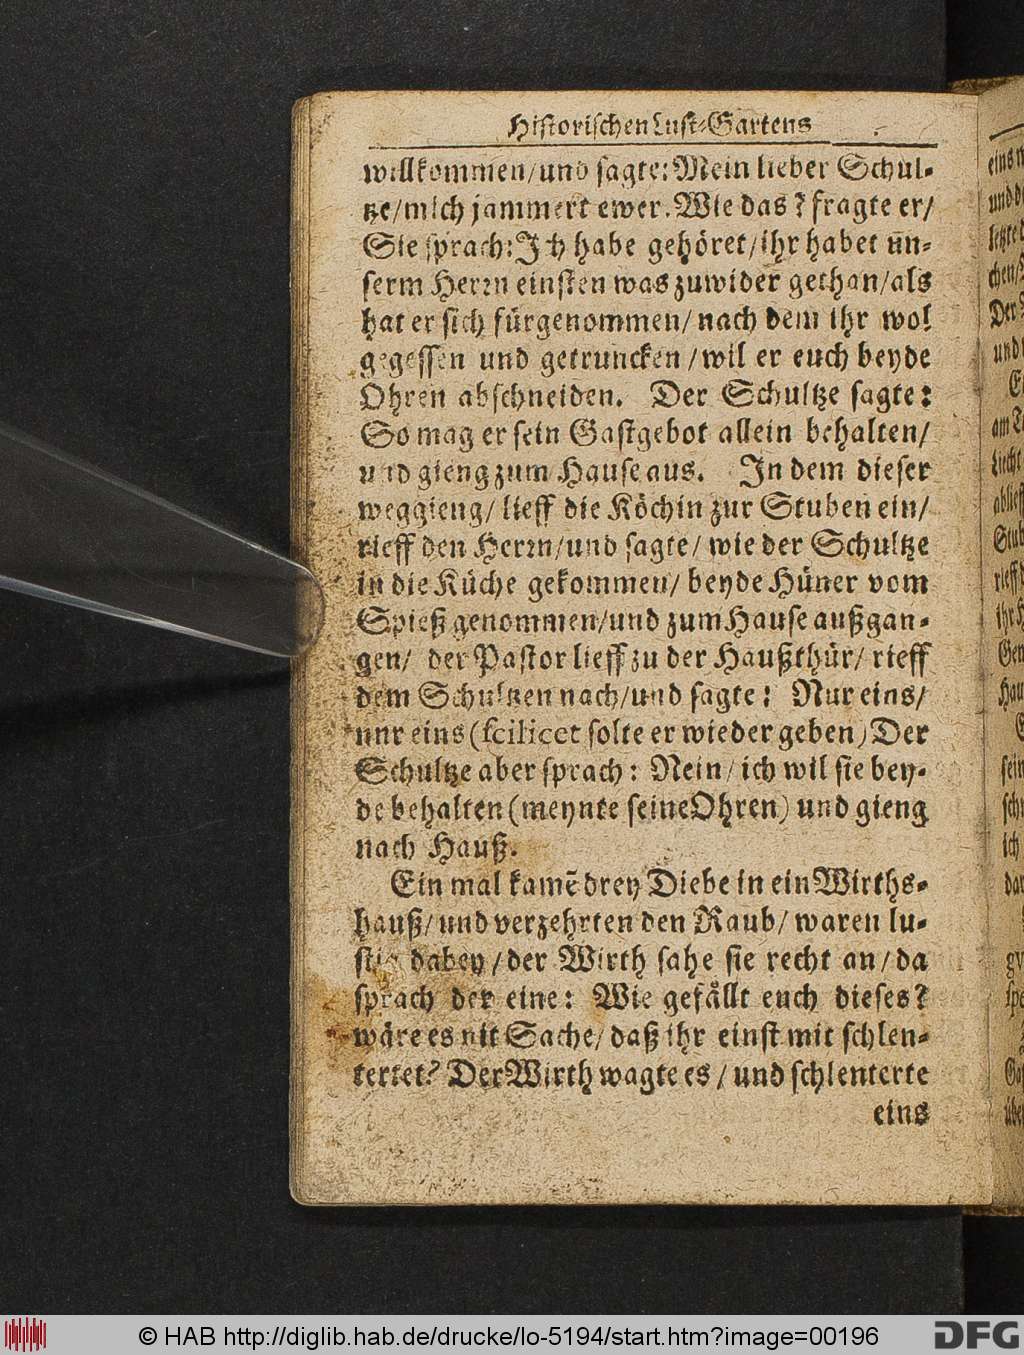 Historischen Lust-Gartens
willkommen/und sagte: Mein lieber Schul-
tze/mich jammert ewer. Wie das? fragte er/
Sie sprach: Ich habe gehöret/ihr habet un-
serm Herrn einsten was zuwider gethan/als
hat er sich fürgenommen/nach dem ihr wol
gegessen und getruncken/wil er euch beyde
Ohren abschneiden. Der Schultze sagte:
So mag er sein Gastgebot allein behalten/
und gieng zum Hause aus. In dem dieser
weggieng/lieff die Köchin zur Stuben ein/
rieff den Herrn/und sagte/wie der Schultze
in die Küche gekommen/beyde Hüner vom
Spieß genommen/und zum Hause außgan-
gen/ der Pastor lieff zu der Haußthür/rieff
dem Schultzen nach/und sagte: Nur eins/
nur eins (scilicet solte er wieder geben) Der
Schultze aber sprach: Nein/ich wil sie bey-
de behalten (meynte seine Ohren) und gieng
nach Hauß.
Ein mal kamē drey Diebe in ein Wirths-
hauß/und verzehrten den Raub/waren lu-
stig dabey/der Wirth sahe sie recht an/da
sprach der eine: Wie gefällt euch dieses?
wäre es nit Sache/daß ihr einst mit schlen-
tertet? Der Wirth wagte es/und schlenterte
eins
© HAB http://diglib.hab.de/drucke/lo-5194/start.htm?image=00196
DFG